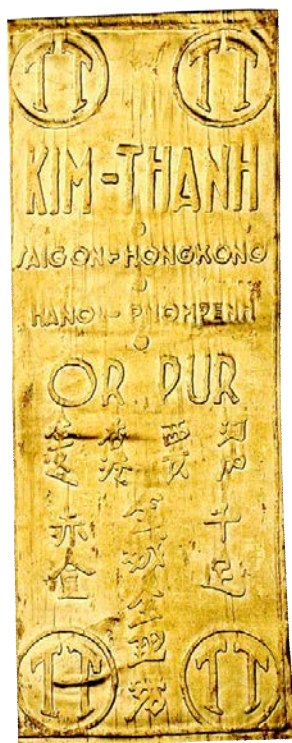 TT TT
KIM-THANH
SAIGON-HONGKONG
HANOI-PNOMPENH
OR PUR
河内
西贡
香港
千足
赤金
TT TT